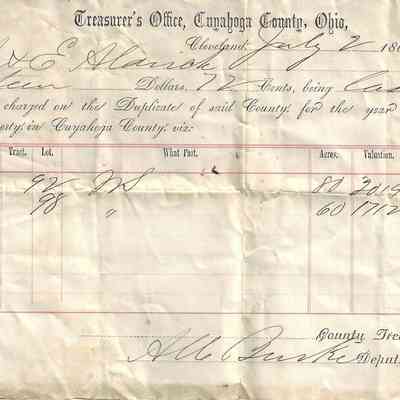 Treasurer's Office, Cuyahoga County, Ohio,
Cleveland, July 2 18
& E
Dollars, 72 Cents, being
charged on the Duplicate of said County for the year
in Cuyahoga County, viz:
Tract. Lot. What Part. Acres. Valuation.
92 80 3019
98 " 60 1712
County Trea
Burke Deput